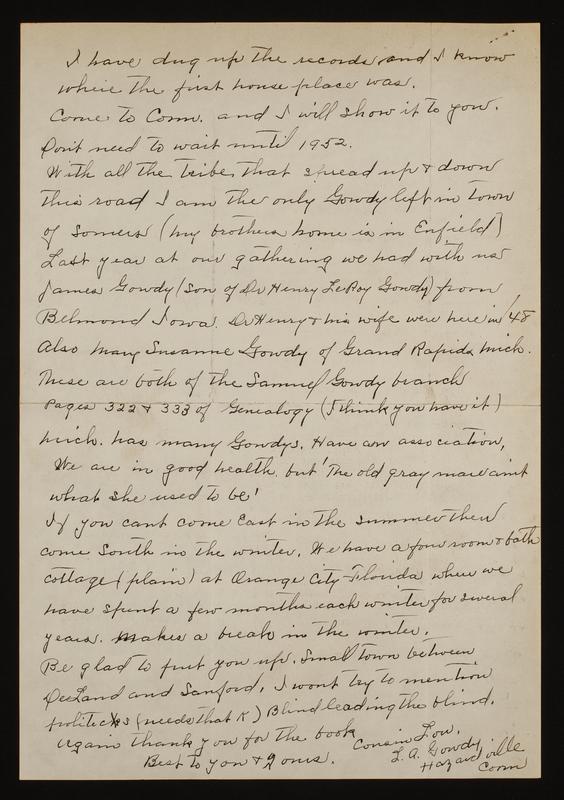 I have dug up the records and I know
where the first house place was.
Come to Conn. and I will show it to you.
Don't need to wait until 1952.
With all the tribe that spread up & down
this road I am the only Gowdy left in town
of Somers (my brothers home is in Enfield)
Last year at our gathering we had with us
James Gowdy (son of Dr Henry LeRoy Gowdy) from
Belmond Iowa. Dr Henry & his wife were here in '48
Also Mary Susanne Gowdy of Grand Rapids Mich.
These are both of the Samuel Gowdy branch
Pages 322 & 333 of Genealogy (I think you have it)
Mich. has many Gowdys. Have an association,
We are in good health. but 'The old gray mare aint
what she used to be'
If you cant come East in the summer then
come South in the winter. We have a four room & bath
cottage (plain) at Orange City Florida where we
have spent a few months each winter for several
years. Makes a break in the winter.
Be glad to put you up. Small town between
DeLand and Sanford. I wont try to mention
politicks (needs that K) Blind leading the blind.
Again thank you for the book
Best to you & Yours.
Cousin Lou.
L. A. Gowdy
Hazardville
Conn